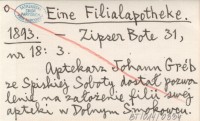 Eine Filialapotheke.
1893. — Zipser Bote 31,
nr 18: 3.
Aptekarz Johann Gréb
ze Spiskiej Soboty dostał pozwo-
lenie na założenie filii swej
apteki w Dolnym Smokowcu.